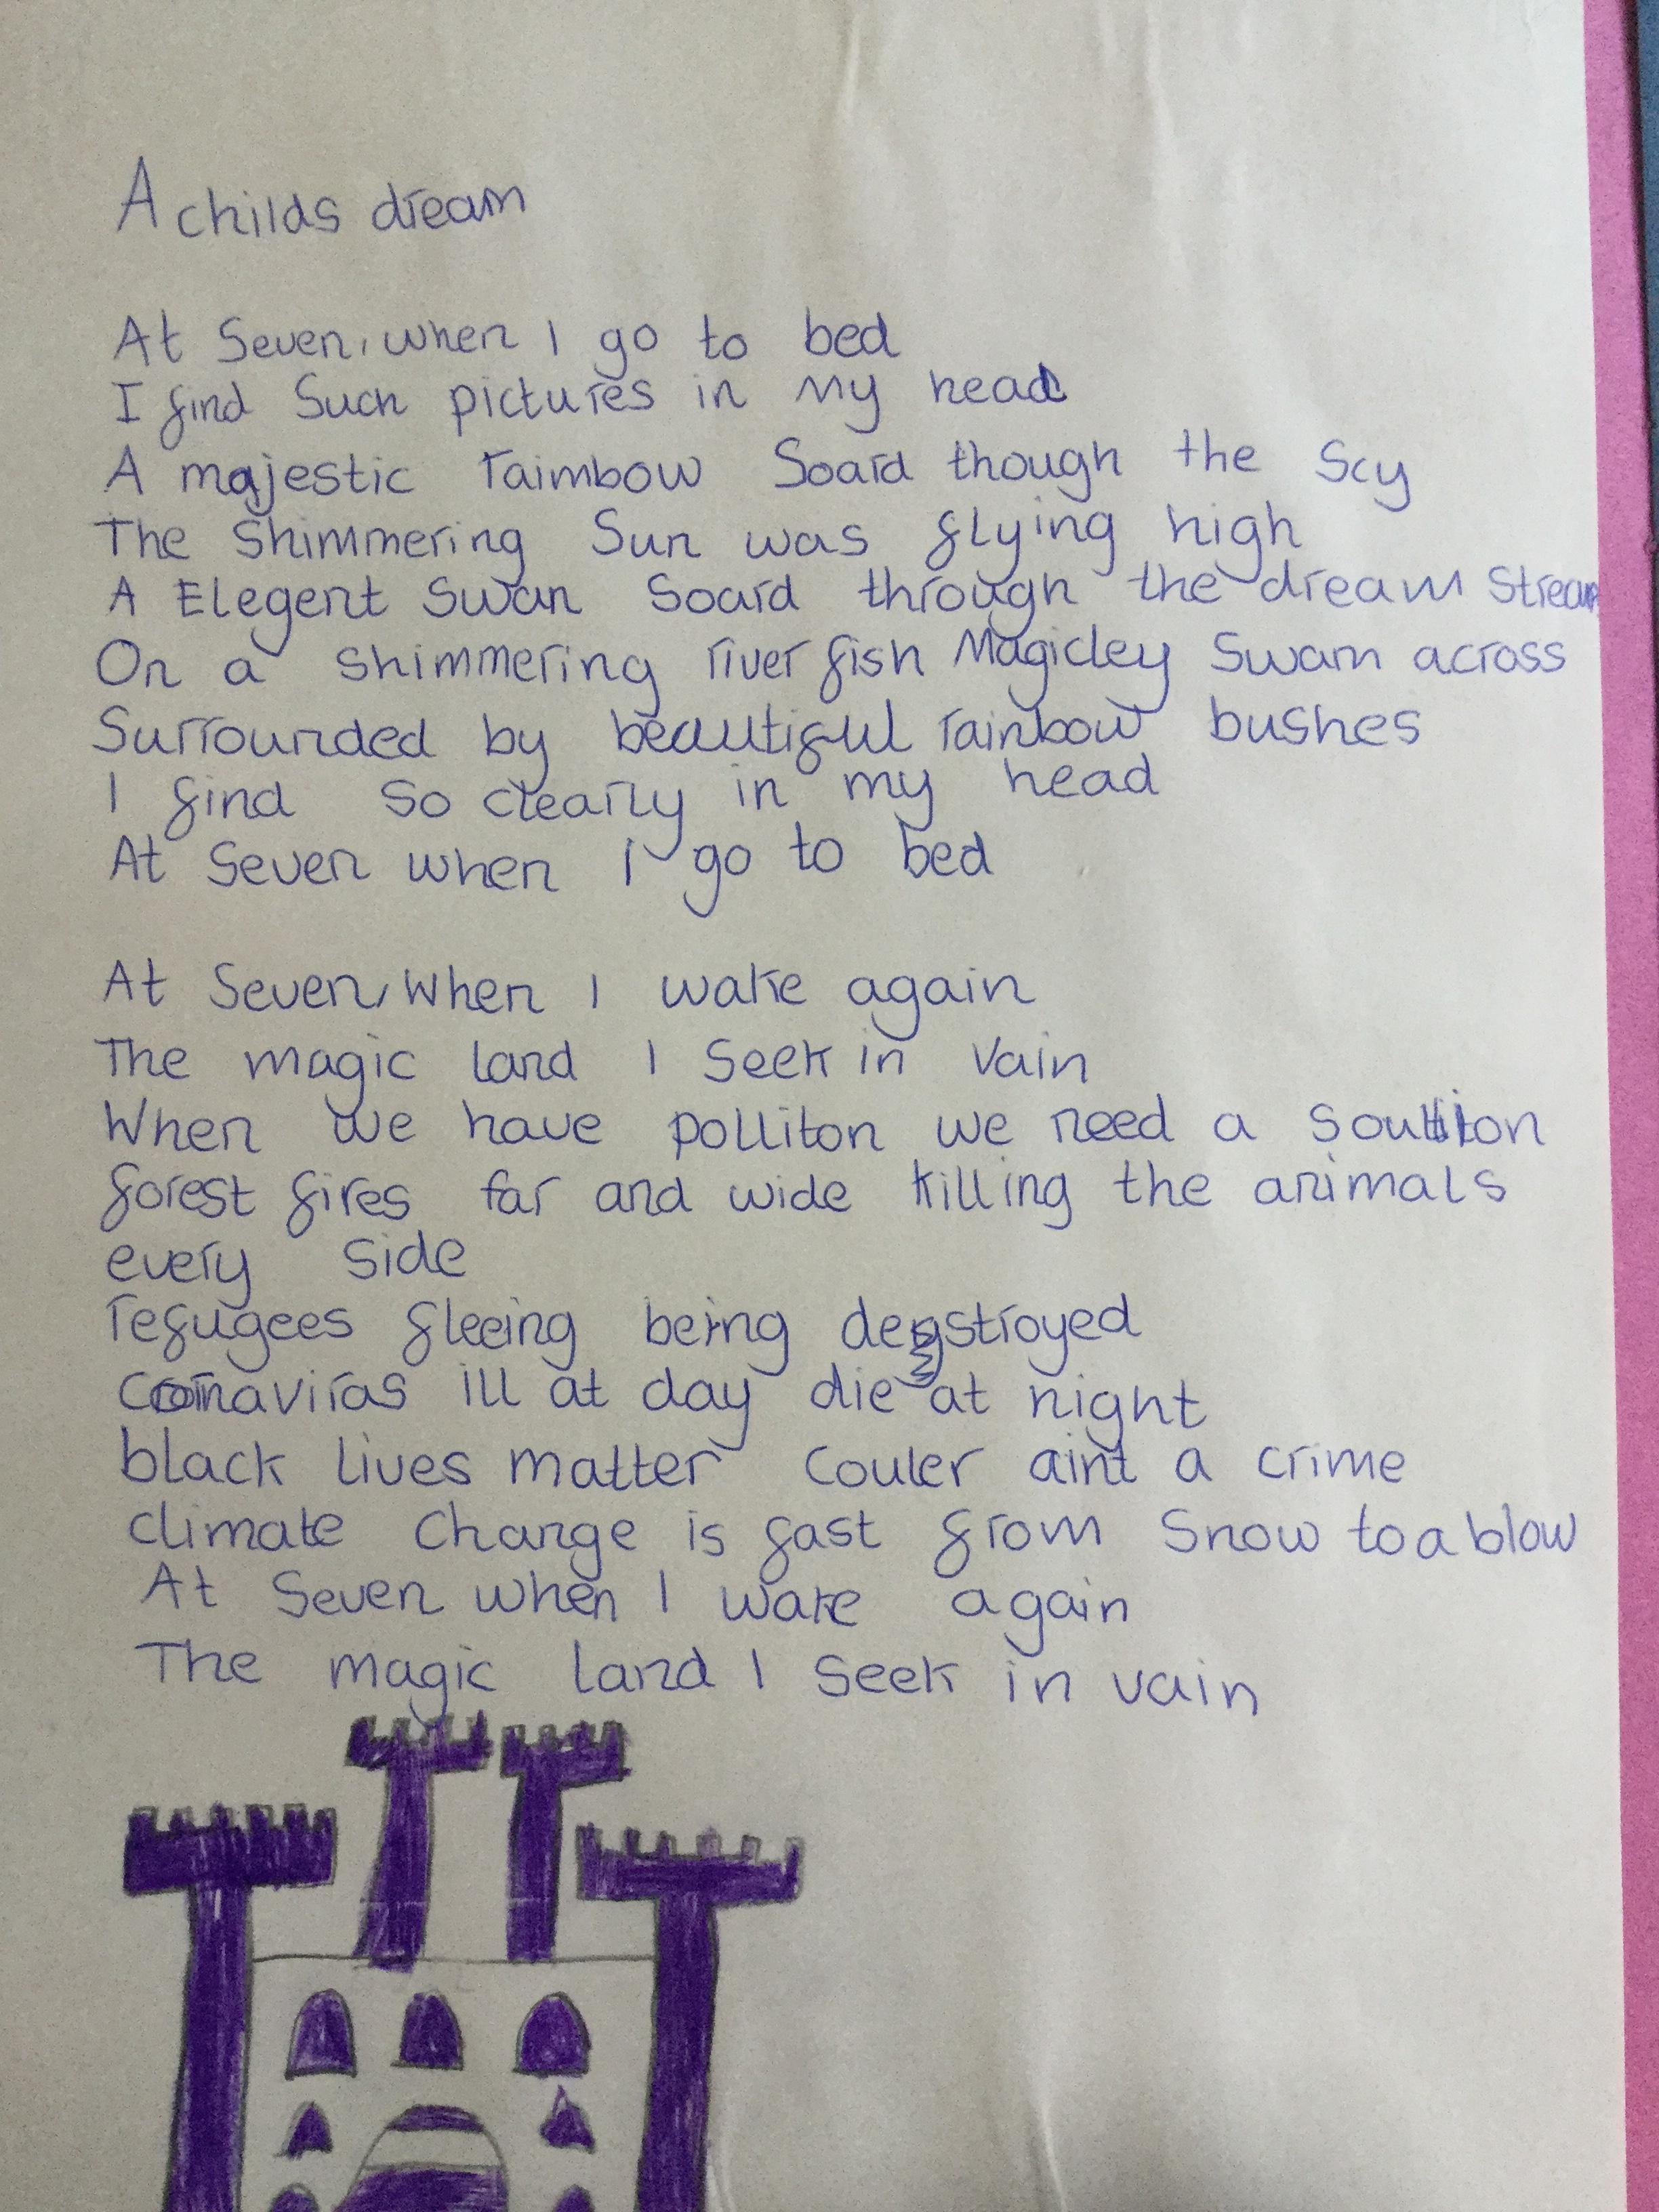 A childs dream
At Seven, when I go to bed
I find Such pictures in my head
A majestic raimbow Soard though the Scy
The Shimmering Sun was flying high
A Elegent Swan Soard through the dream Stream
On a shimmering river fish Magicley Swam across
Surrounded by beautiful rainbow bushes
I find so clearly in my head
At Seven when I go to bed
At Seven, when I wake again
The magic land I Seek in vain
When we have polliton we need a soultiton
forest fires far and wide killing the animals
every side
refugees fleeing being destroyed
Cornaviras ill at day die at night
black lives matter couler aint a crime
climate change is fast from Snow to a blow
At Seven when I wake again
The magic land I Seek in vain